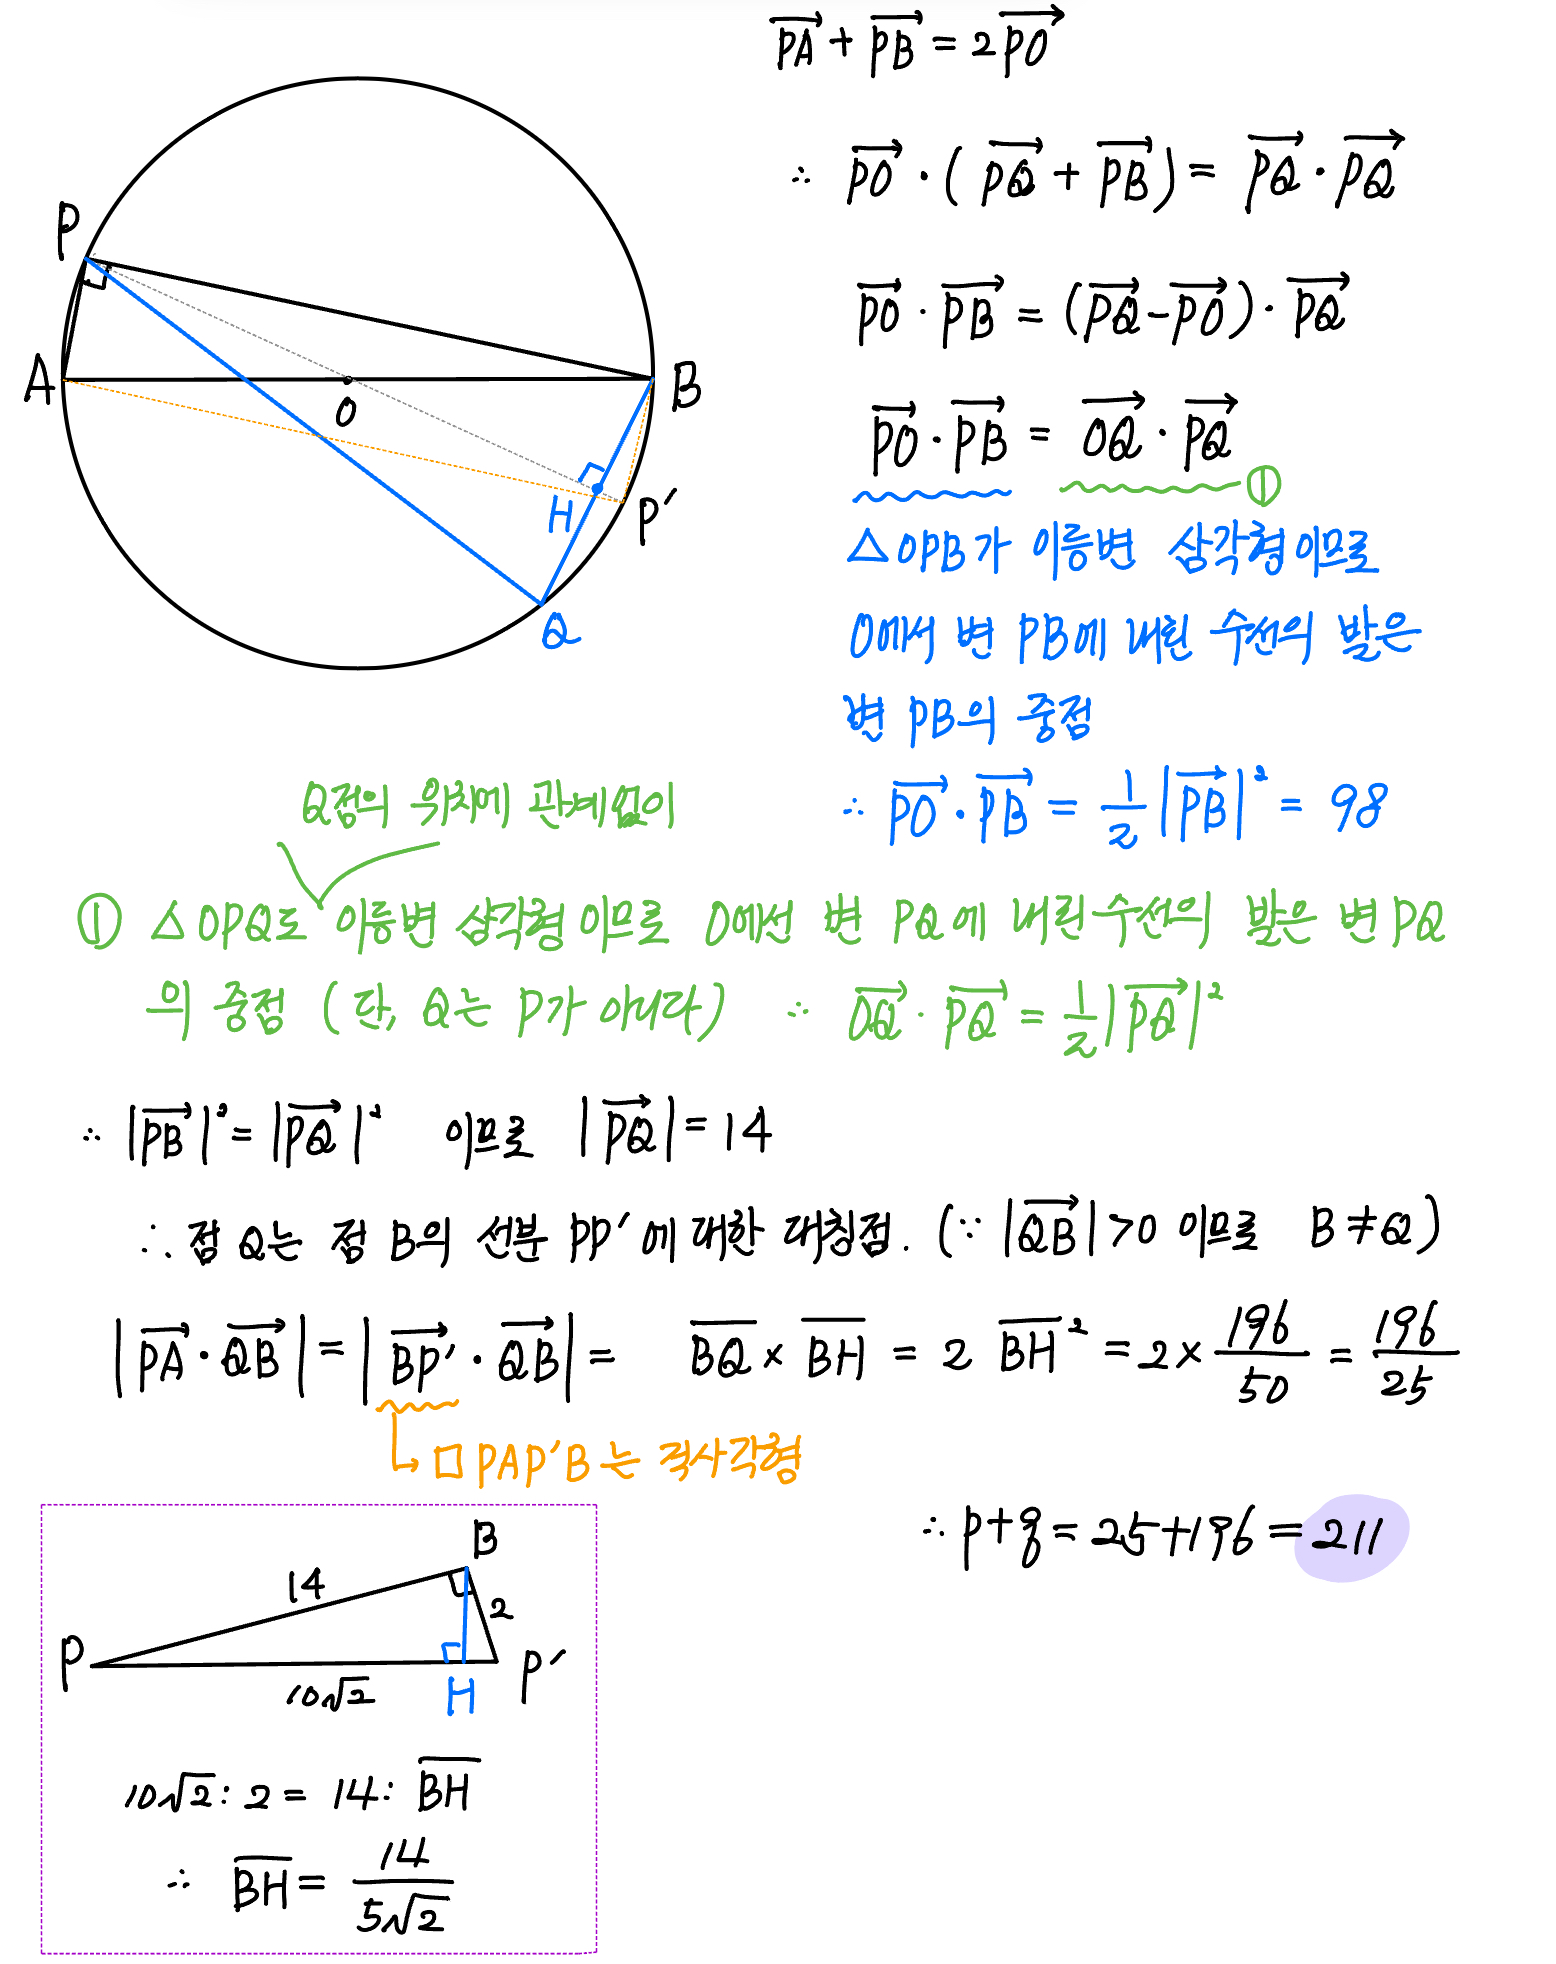 P
A
O
B
H
P′
Q
$\overrightarrow{PA} + \overrightarrow{PB} = 2\overrightarrow{PO}$
∴ $\overrightarrow{PO} \cdot (\overrightarrow{PQ} + \overrightarrow{PB}) = \overrightarrow{PQ} \cdot \overrightarrow{PQ}$
$\overrightarrow{PO} \cdot \overrightarrow{PB} = (\overrightarrow{PQ} - \overrightarrow{PO}) \cdot \overrightarrow{PQ}$
$\overrightarrow{PO} \cdot \overrightarrow{PB} = \overrightarrow{OQ} \cdot \overrightarrow{PQ}$ ①
△OPB가 이등변 삼각형이므로
O에서 변 PB에 내린 수선의 발은
변 PB의 중점
∴ $\overrightarrow{PO} \cdot \overrightarrow{PB} = \frac{1}{2}|\overrightarrow{PB}|^2 = 98$
Q점의 위치에 관계없이
① △OPQ도 이등변 삼각형이므로 O에선 변 PQ에 내린 수선의 발은 변 PQ
의 중점 (단, Q는 P가 아니다) ∴ $\overrightarrow{OQ} \cdot \overrightarrow{PQ} = \frac{1}{2}|\overrightarrow{PQ}|^2$
∴ $|\overrightarrow{PB}|^2 = |\overrightarrow{PQ}|^2$ 이므로 $|\overrightarrow{PQ}| = 14$
∴ 점 Q는 점 B의 선분 PP′에 대한 대칭점. (∵ $|\overrightarrow{QB}| > 0$ 이므로 B ≠ Q)
$|\overrightarrow{PA} \cdot \overrightarrow{QB}| = |\overrightarrow{BP'} \cdot \overrightarrow{QB}| = \overline{BQ} \times \overline{BH} = 2\overline{BH}^2 = 2 \times \frac{196}{50} = \frac{196}{25}$
↳ □PAP′B는 직사각형
∴ p+q = 25+196 = 211
B
14
2
P
P′
10√2
H
10√2 : 2 = 14 : $\overline{BH}$
∴ $\overline{BH} = \frac{14}{5\sqrt{2}}$